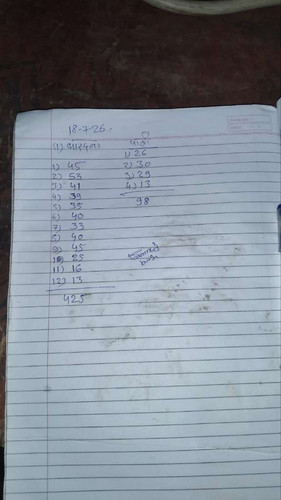 18-7-26.
(1)
1) 45
2) 53
3) 41
4) 39
5) 35
6) 40
7) 33
8) 40
9) 45
10) 25
11) 16
12) 13
425
1) 26
2) 30
3) 29
4) 13
98